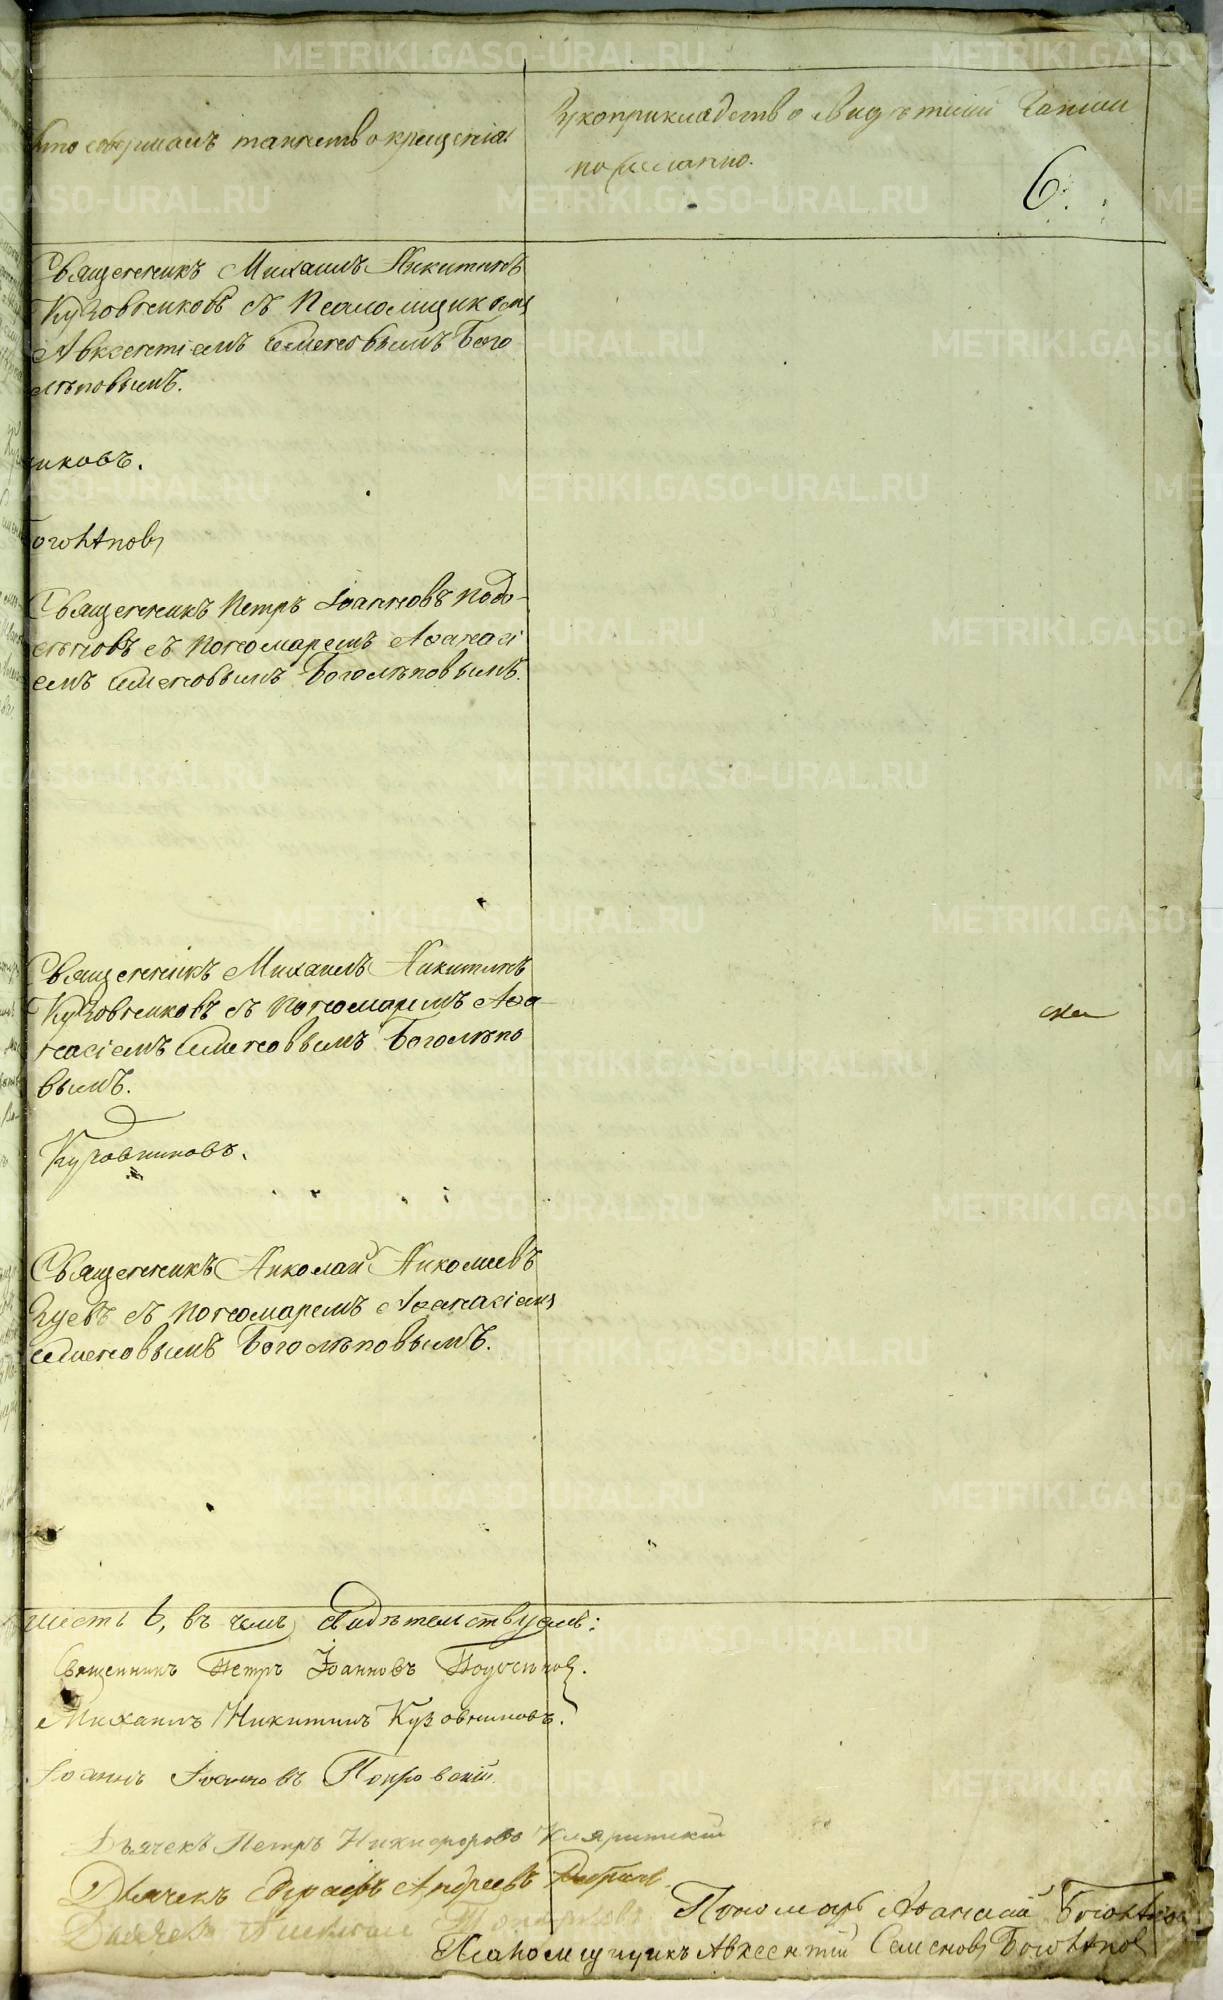 Кто совершалъ таинство крещенія.
Рукоприкладство свидѣтелей записи
по желанію.
6.
Священникъ Михаилъ Никитинъ
Кузовниковъ съ Псаломщикомъ
Авксентіемъ Семеновымъ Бого
лѣповымъ.
никовъ.
Боголѣповъ
Священникъ Петръ Іоанновъ Подо-
съ Пономаремъ Афанасі
емъ Семеновымъ Боголѣповымъ.
Священникъ Михаилъ Никитинъ
Кузовниковъ съ Пономаремъ Афа-
насіемъ Семеновымъ Боголѣпо
вымъ.
Кузовниковъ.
Священникъ Николай Николаевъ
съ Пономаремъ Афанасіемъ
Семеновымъ Боголѣповымъ.
шесть 6, въ чемъ свидѣтельствуемъ:
Священникъ Петръ Іоанновъ
Михаилъ Никитинъ Кузовниковъ.
Іоаннъ Іоанновъ Покровскій
Дьячекъ Петръ Никифоровъ
Дьячекъ Андреевъ
Дьячекъ
Пономарь Афанасій Боголѣповъ
Псаломщикъ Авксентій Семеновъ Боголѣповъ
METRIKI.GASO-URAL.RU